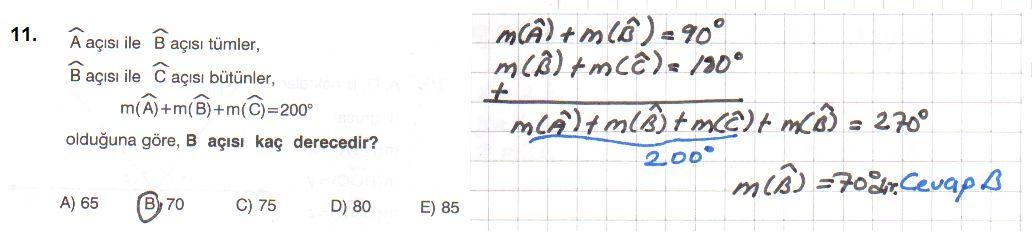 11.
Â açısı ile B̂ açısı tümler,
B̂ açısı ile Ĉ açısı bütünler,
m(Â)+m(B̂)+m(Ĉ)=200°
olduğuna göre, B açısı kaç derecedir?
A) 65 B) 70 C) 75 D) 80 E) 85
m(Â) + m(B̂) = 90°
m(B̂) + m(Ĉ) = 180°
+
m(Â) + m(B̂) + m(Ĉ) + m(B̂) = 270°
200°
m(B̂) = 70°dir. Cevap B